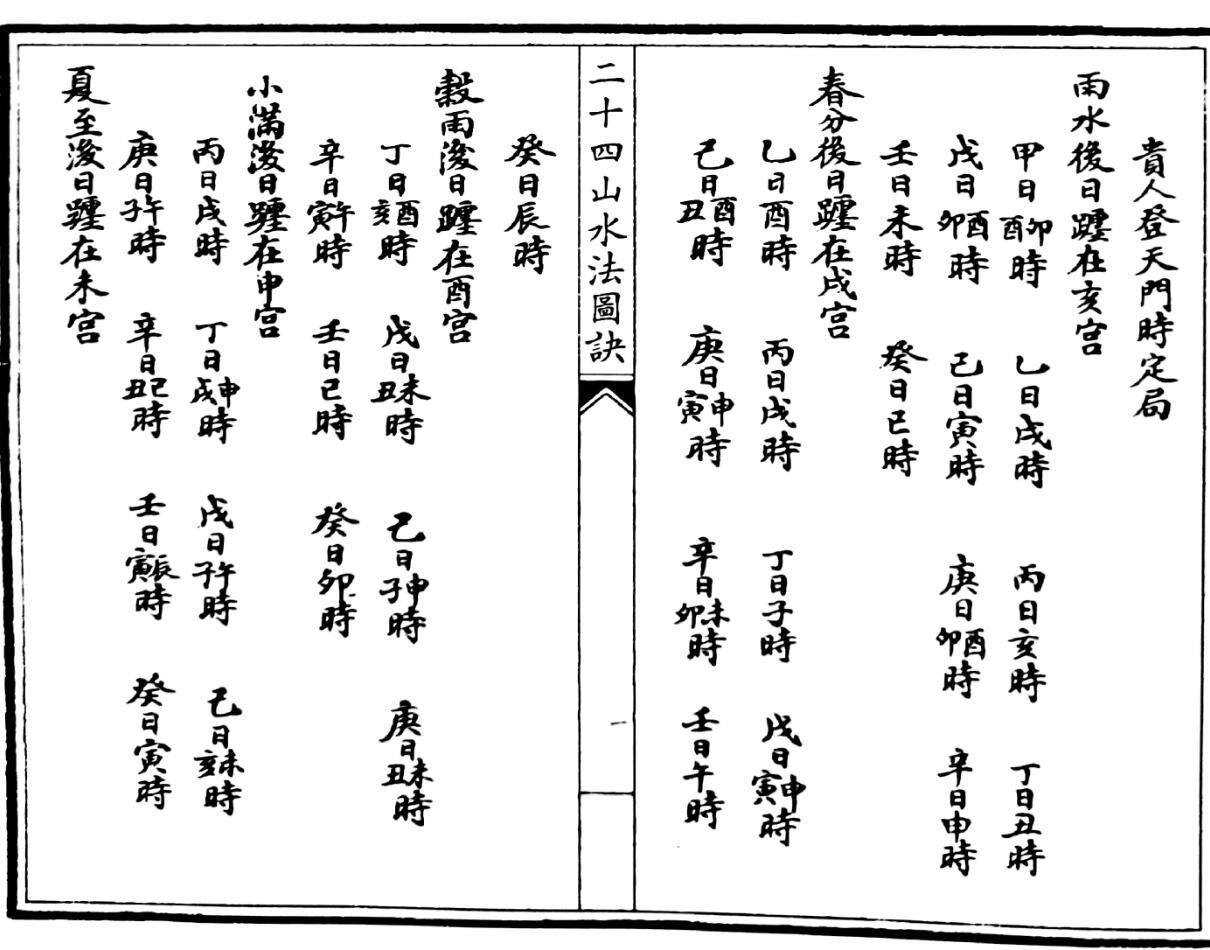 貴人登天門時定局
雨水後日躔在亥宫
甲日卯酉時 乙日戌時 丙日亥時 丁日丑時
戊日酉卯時 己日寅時 庚日酉卯時 辛日申時
壬日未時 癸日巳時
春分後日躔在戌宫
乙日酉時 丙日戌時 丁日子時 戊日申寅時
己日酉丑時 庚日申寅時 辛日未卯時 壬日午時
二十四山水法圖訣
一
癸日辰時
穀雨後日躔在酉宫
丁日酉亥時 戊日未丑時 己日申子時 庚日未丑時
辛日午寅時 壬日巳時 癸日卯時
小滿後日躔在申宫
丙日戌時 丁日申戌時 戊日午子時 己日未亥時
庚日午子時 辛日巳丑時 壬日辰寅時 癸日寅時
夏至後日躔在未宫